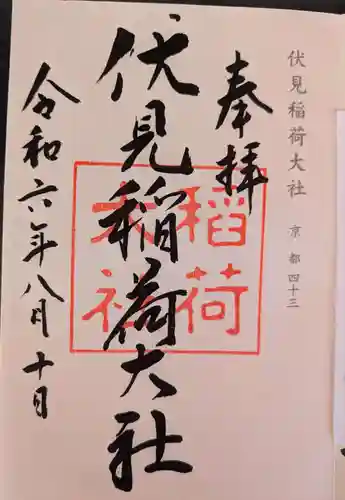 伏見稲荷大社 京都四十三
奉拝
伏見稲荷大社
稲荷
大社
令和六年八月十日